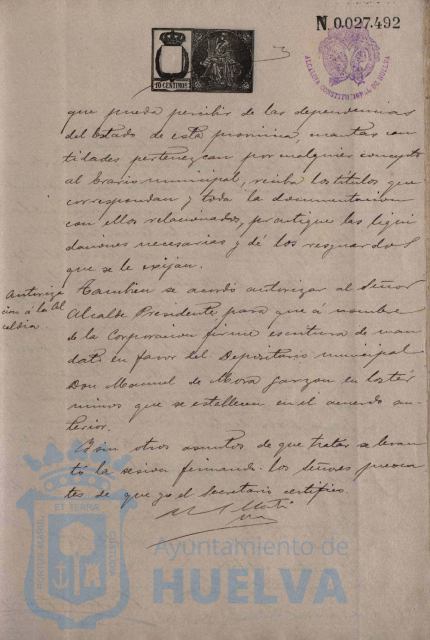 N. 0.027.492
10 CENTIMOS
ALCALDIA CONSTITUCIONAL DE HUELVA
que pueda percibir de las dependencias
del Estado de esta provincia, cuantas can
tidades pertenezcan por cualquier concepto
al Erario municipal, reciba los titulos que
correspondan y toda la documentacion
con ellos relacionados, practique las liqui
daciones necesarias y dé los resguardos
que se le exijan.
Autoriza
cion á la Al
caldia.
Tambien se acordó autorizar al Señor
Alcalde Presidente para que á nombre
de la Corporacion firme escritura de man
dato en favor del Depositario municipal
Don Manuel de Mora Garzon en los tér
minos que se establecen en el acuerdo an-
terior.
Y sin otros asuntos de que tratar se levan
tó la sesion firmando los Señores presen
tes de que yo el Secretario certifico.
PORTUS MARIS
ET TERRÆ
CUSTODIA
Ayuntamiento de
HUELVA